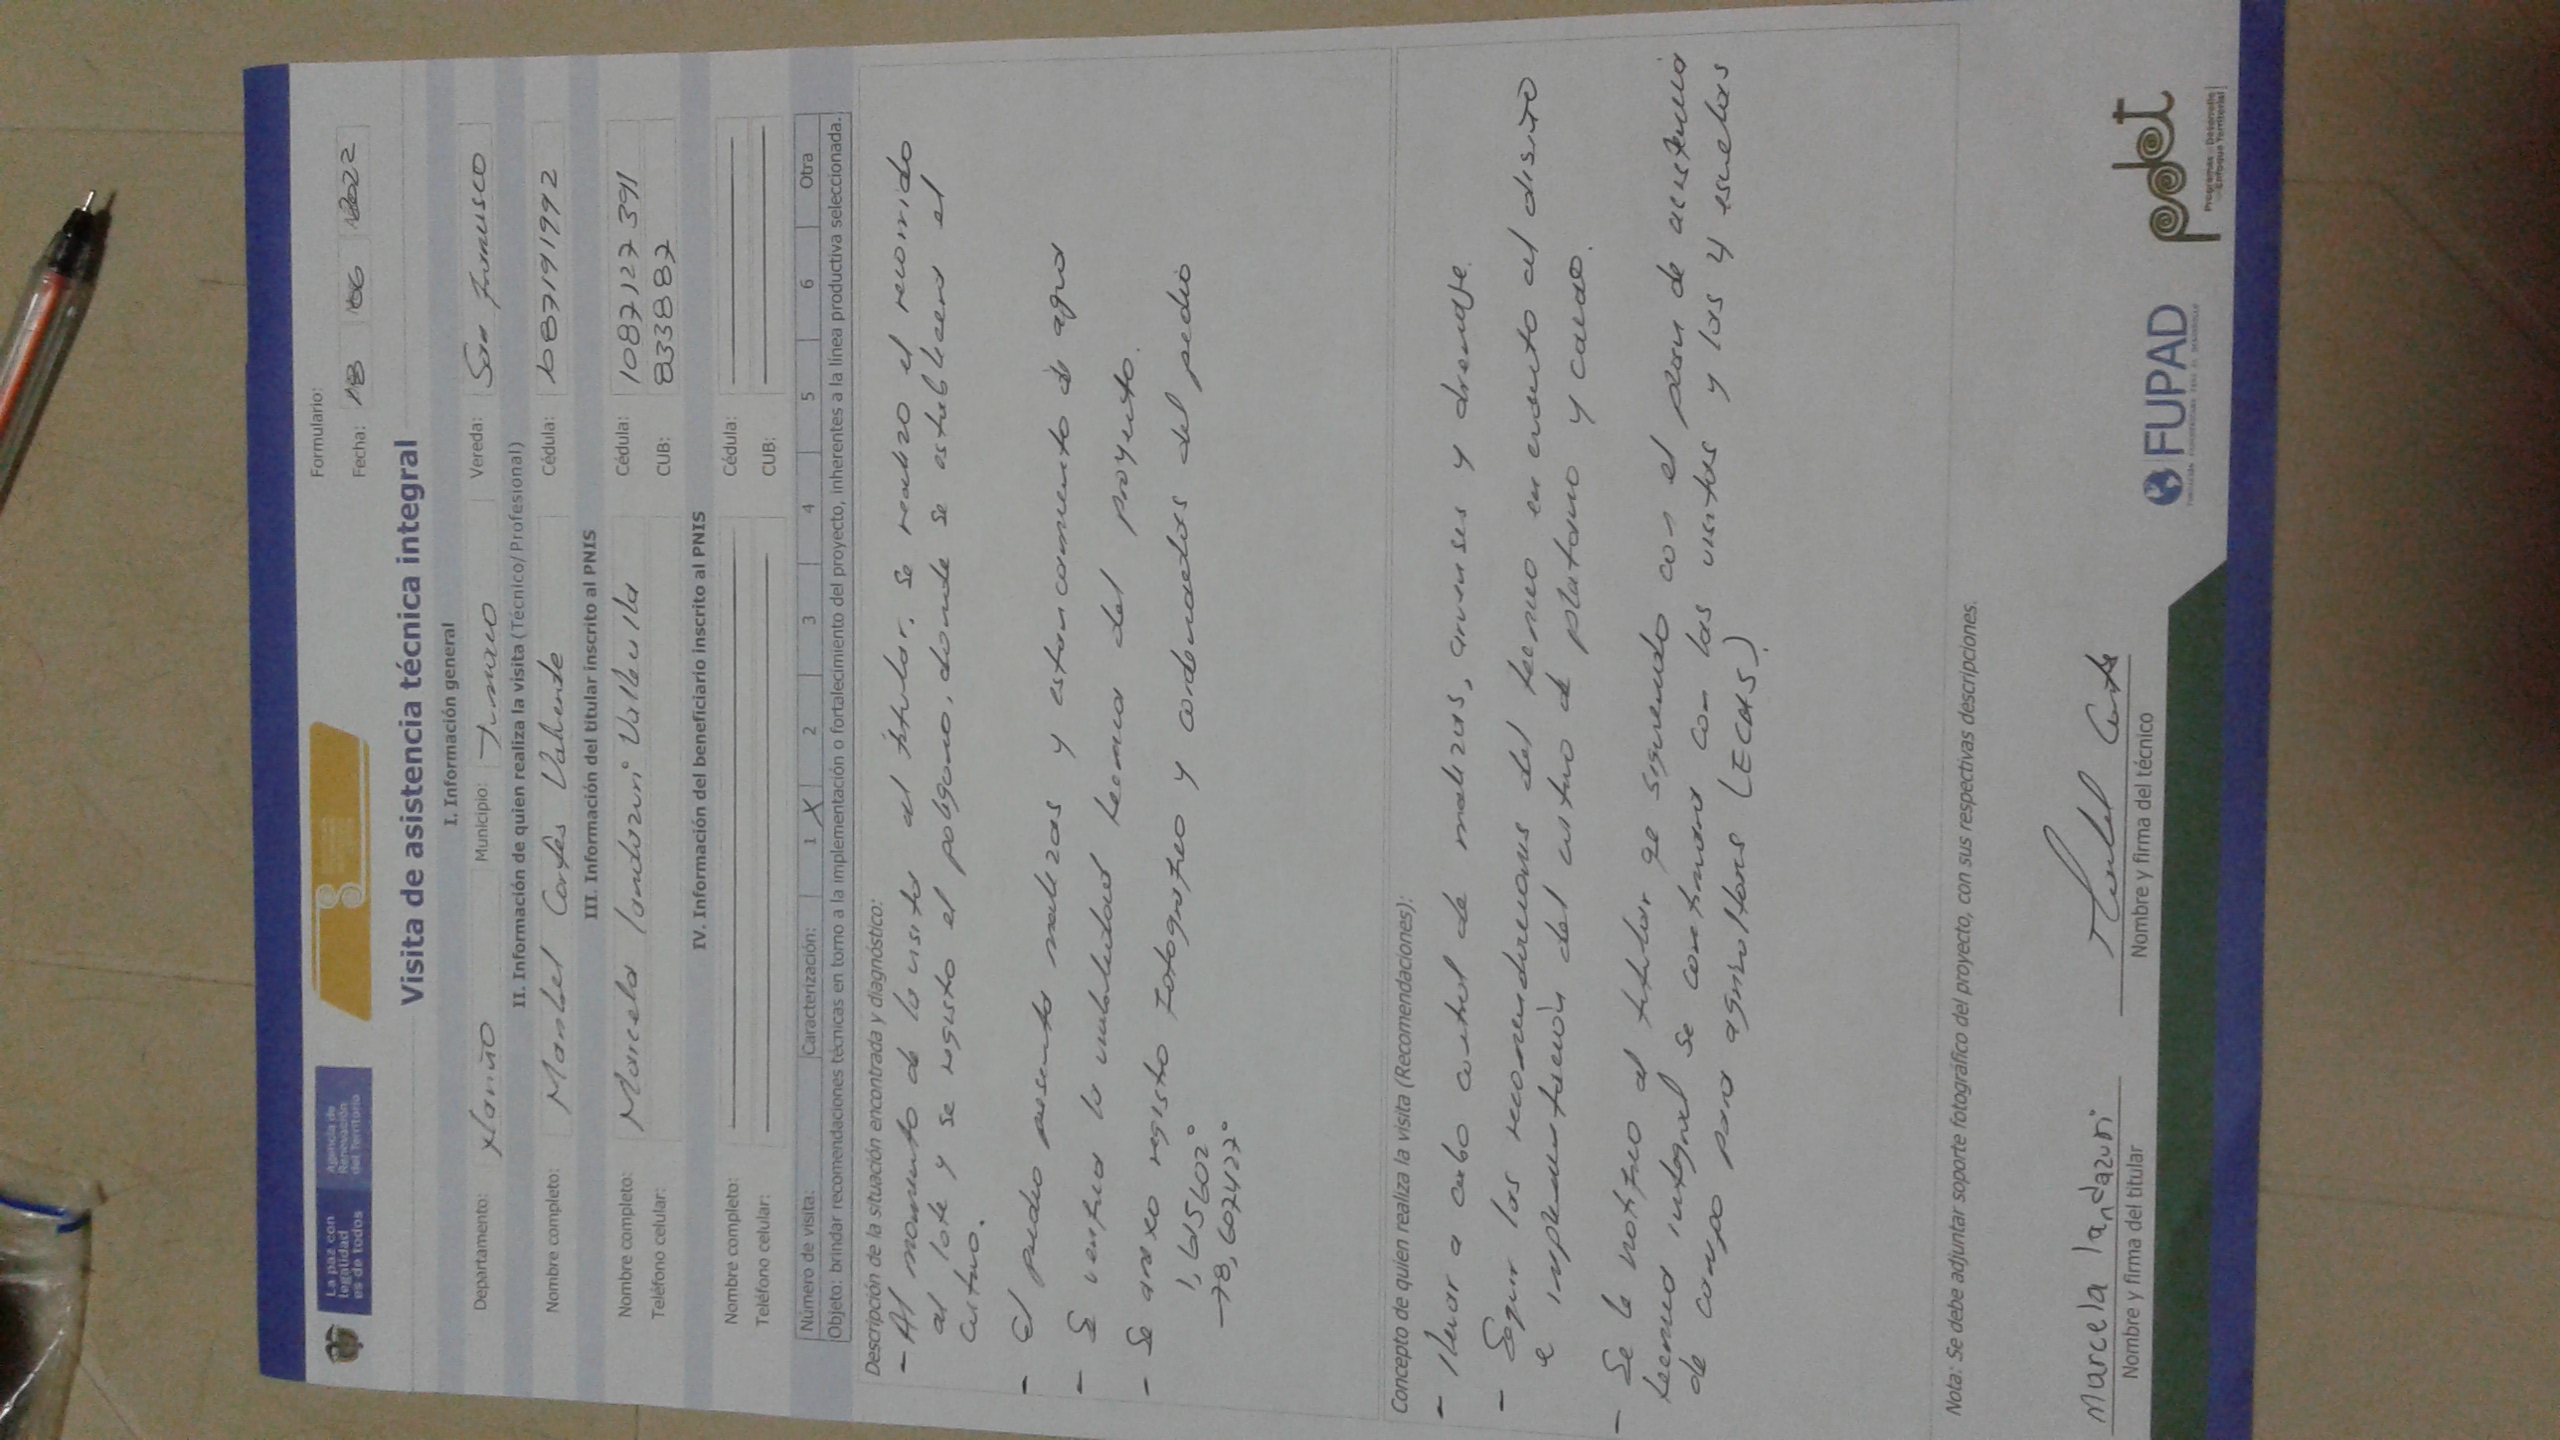 La paz con legalidad es de todos
Agencia de Renovación del Territorio
Formulario:
Fecha: 18 06 2022
Visita de asistencia técnica integral
I. Información general
Departamento: Nariño Municipio: Tumaco Vereda: San Francisco
II. Información de quien realiza la visita (Técnico/Profesional)
Nombre completo: Maribel Cortes Valverde Cédula: 1087191992
III. Información del titular inscrito al PNIS
Nombre completo: Marcela landazuri Vallecilla Cédula: 1087127391
Teléfono celular: CUB: 833887
IV. Información del beneficiario inscrito al PNIS
Nombre completo: Cédula:
Teléfono celular: CUB:
Número de visita: Caracterización: 1 X 2 3 4 5 6 Otra
Objeto: brindar recomendaciones técnicas en torno a la implementación o fortalecimiento del proyecto, inherentes a la línea productiva seleccionada.
Descripción de la situación encontrada y diagnóstico:
- Al momento de la visita al titular, se realizo el recorrido
al lote y se registo el poligono, donde se establecera el
cultivo.
- El predio presenta malezas y estancamiento de agua
- Se verifica la viabilidad tecnica del proyecto.
- Se anexo registo fotografico y cordenadas del predio
1,615602°
-78,607427°
Concepto de quien realiza la visita (Recomendaciones):
- llevar a cabo control de malezas, arvenses y drenaje.
- Seguir las recomendaciones del tecnico en cuanto al diseño
e implementación del cultivo de platano y cacao.
- Se le notifico al titular qe siguiendo con el plan de acistencia
tecnica integral se continuara con las visitas y las 4 escuelas
de campo para agricultores (ECAS).
Nota: Se debe adjuntar soporte fotográfico del proyecto, con sus respectivas descripciones.
Marcela landazuri
Nombre y firma del titular
Maribel Cortes
Nombre y firma del técnico
FUPAD
pdet
Programas de Desarrollo con Enfoque Territorial